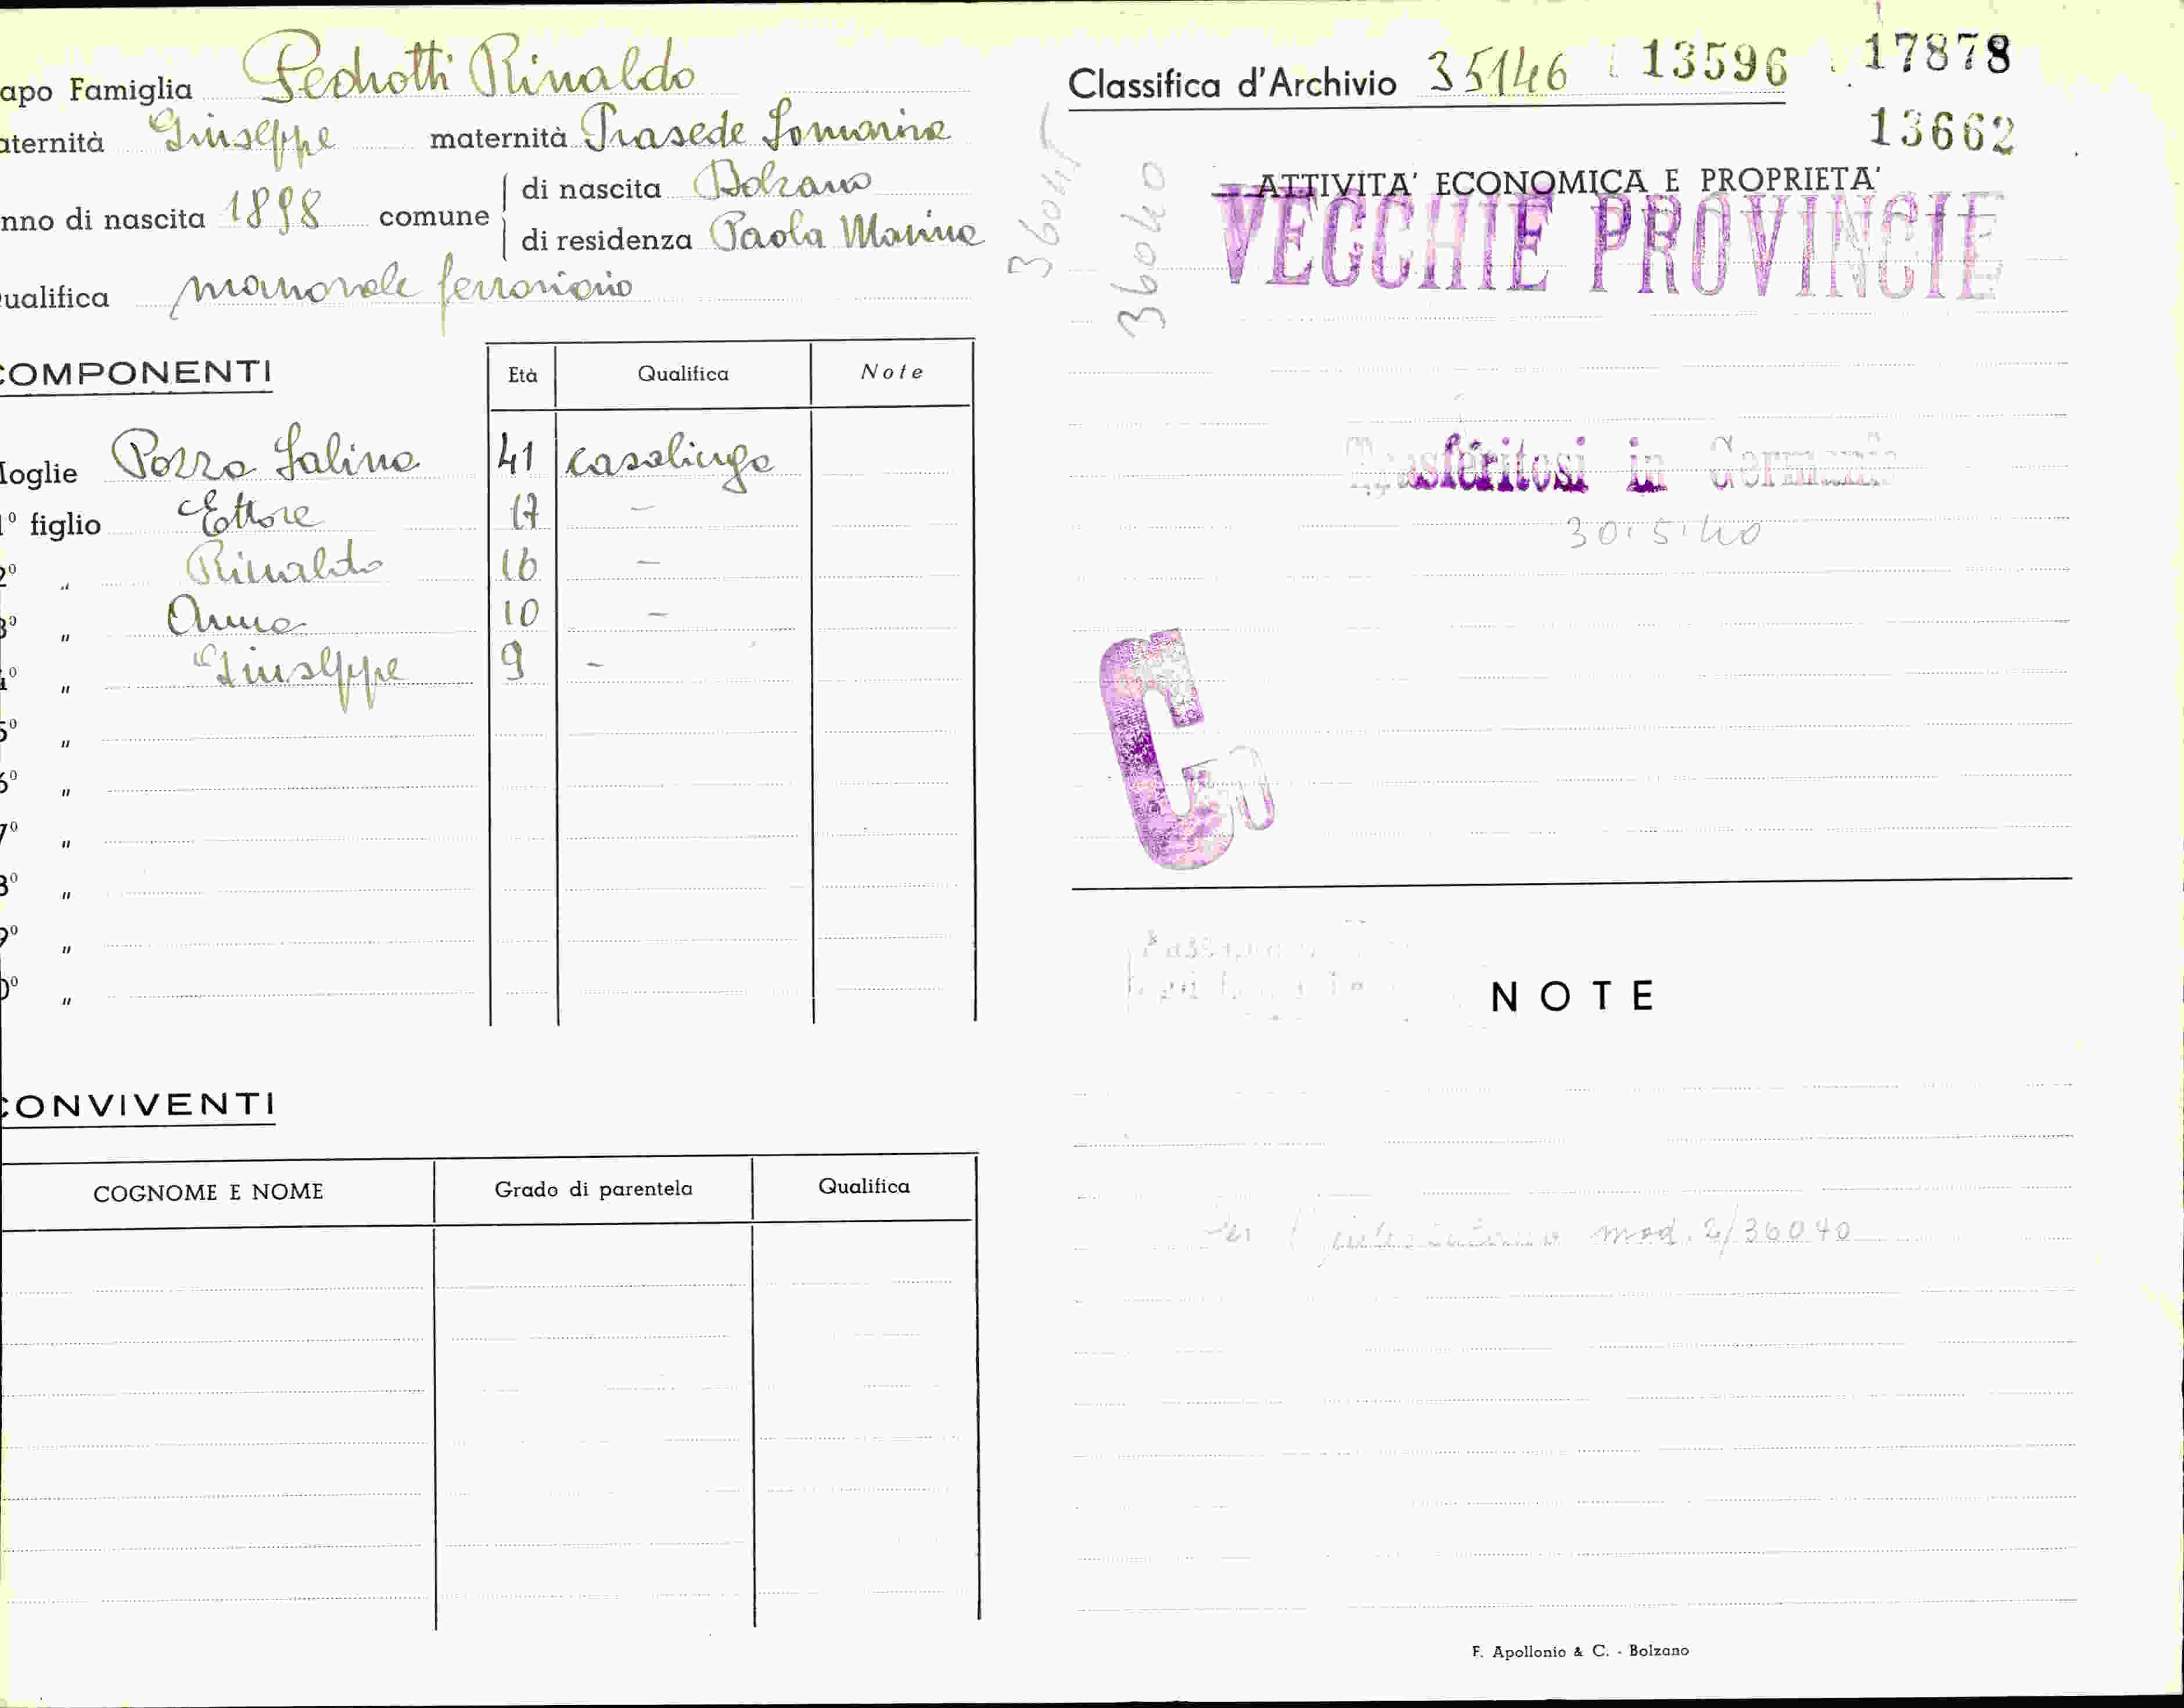 apo Famiglia Pedrotti Rinaldo
aternità Giuseppe maternità Prasede Somarina
nno di nascita 1898 comune di nascita Bolzano
di residenza Paola Marina
ualifica manovale ferroviario
COMPONENTI
Età Qualifica Note
Moglie Pozzo Salina 41 casalinga
1º figlio Ettore 17 –
2º „ Rinaldo 16 –
3º „ Anna 10 –
4º „ Giuseppe 9 –
5º „
6º „
7º „
8º „
9º „
0º „
CONVIVENTI
COGNOME E NOME Grado di parentela Qualifica
36045
36040
Classifica d'Archivio 35146 13596 17878
13662
ATTIVITA' ECONOMICA E PROPRIETA'
VECCHIE PROVINCIE
Trasferitosi in Germania
30.5.40
C
NOTE
mod. 2/36040
F. Apollonio & C. - Bolzano